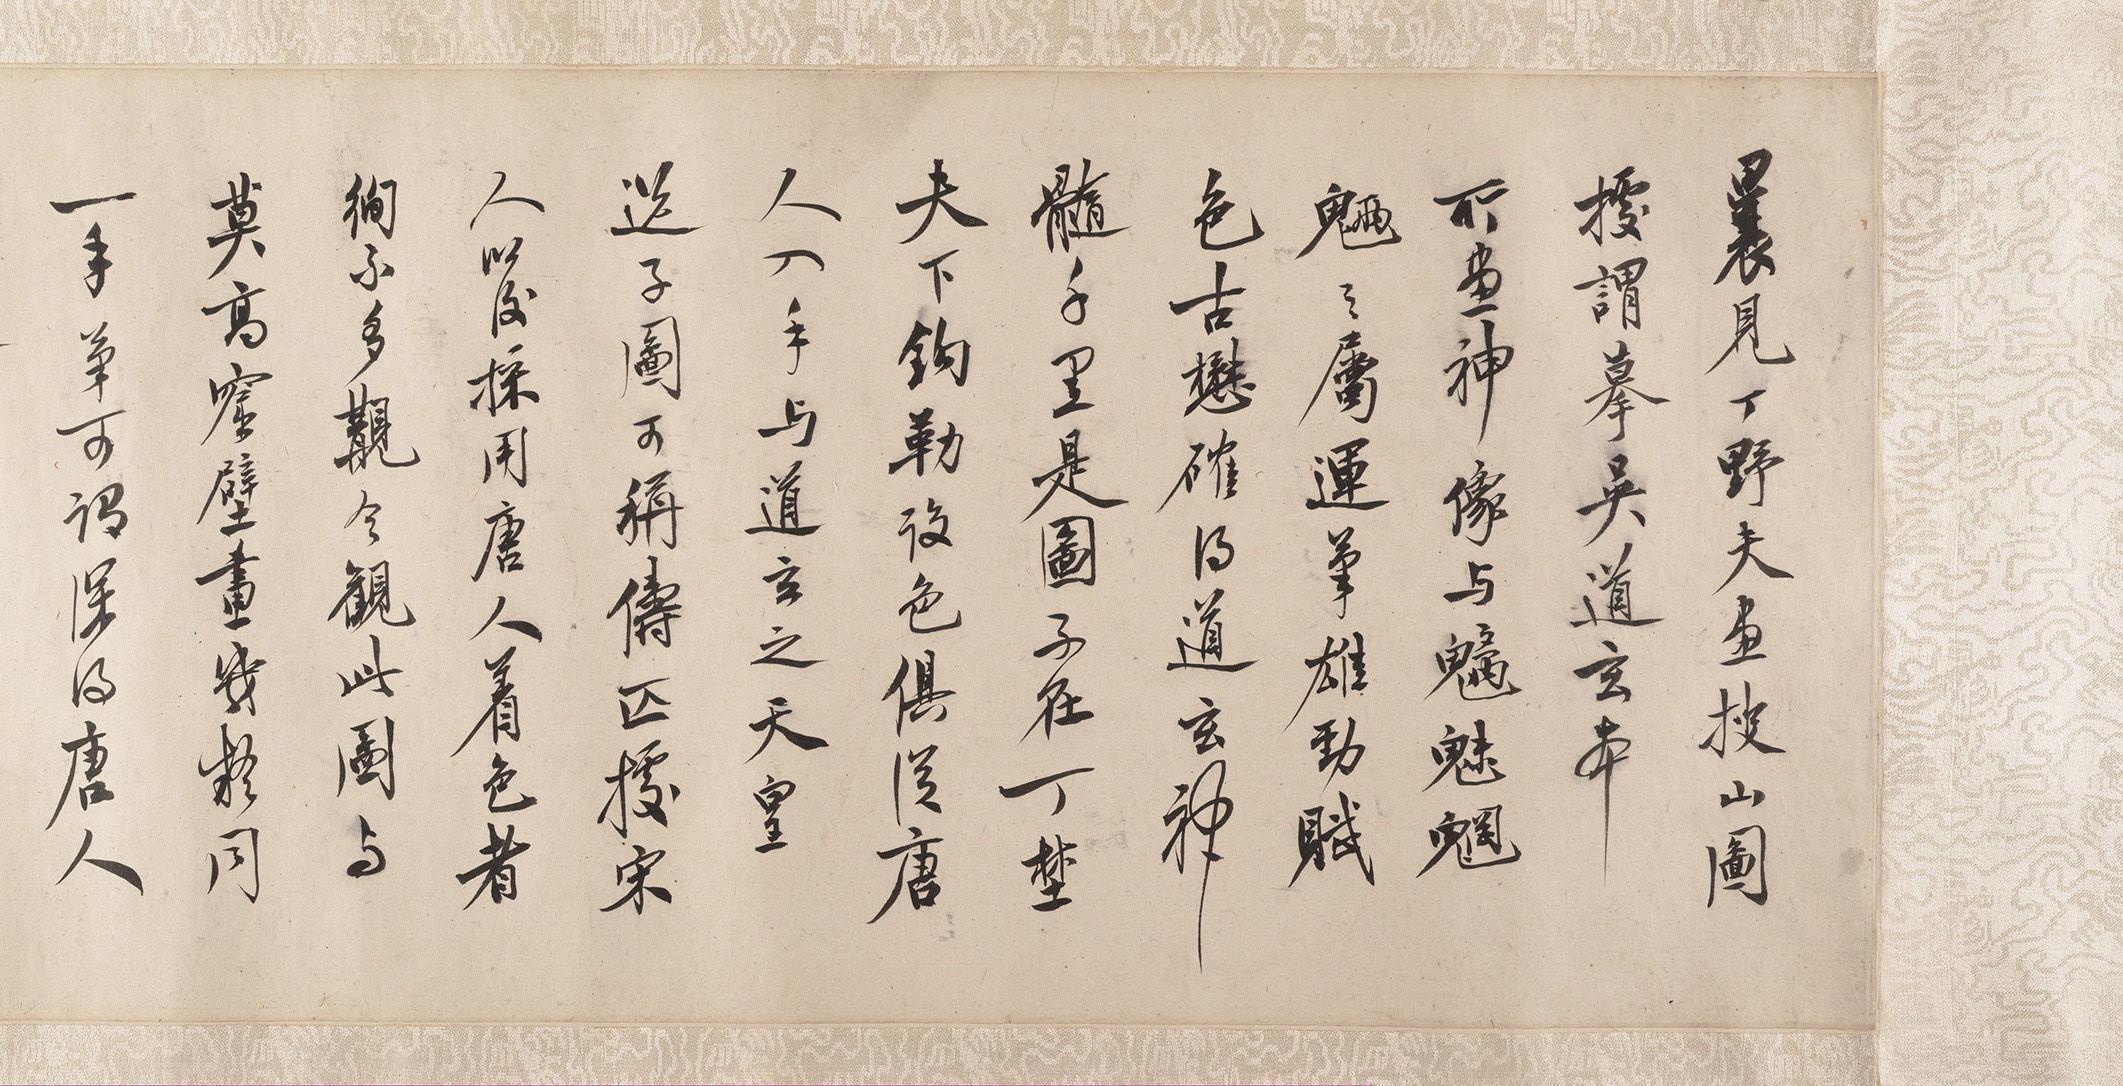 曩見丁野夫畫搜山圖
據謂摹吳道玄本
所畫神像与魑魅魍
魎之屬運筆雄勁賦
色古懋確得道玄神
髓千里是圖予在丁埜
夫下鈎勒設色俱從唐
人入手与道玄之天皇
送子圖可稱儔匹據宋
人以後採用唐人着色者
徇不多覯今觀此圖与
莫高窟壁畫幾疑同
一手筆可謂深得唐人